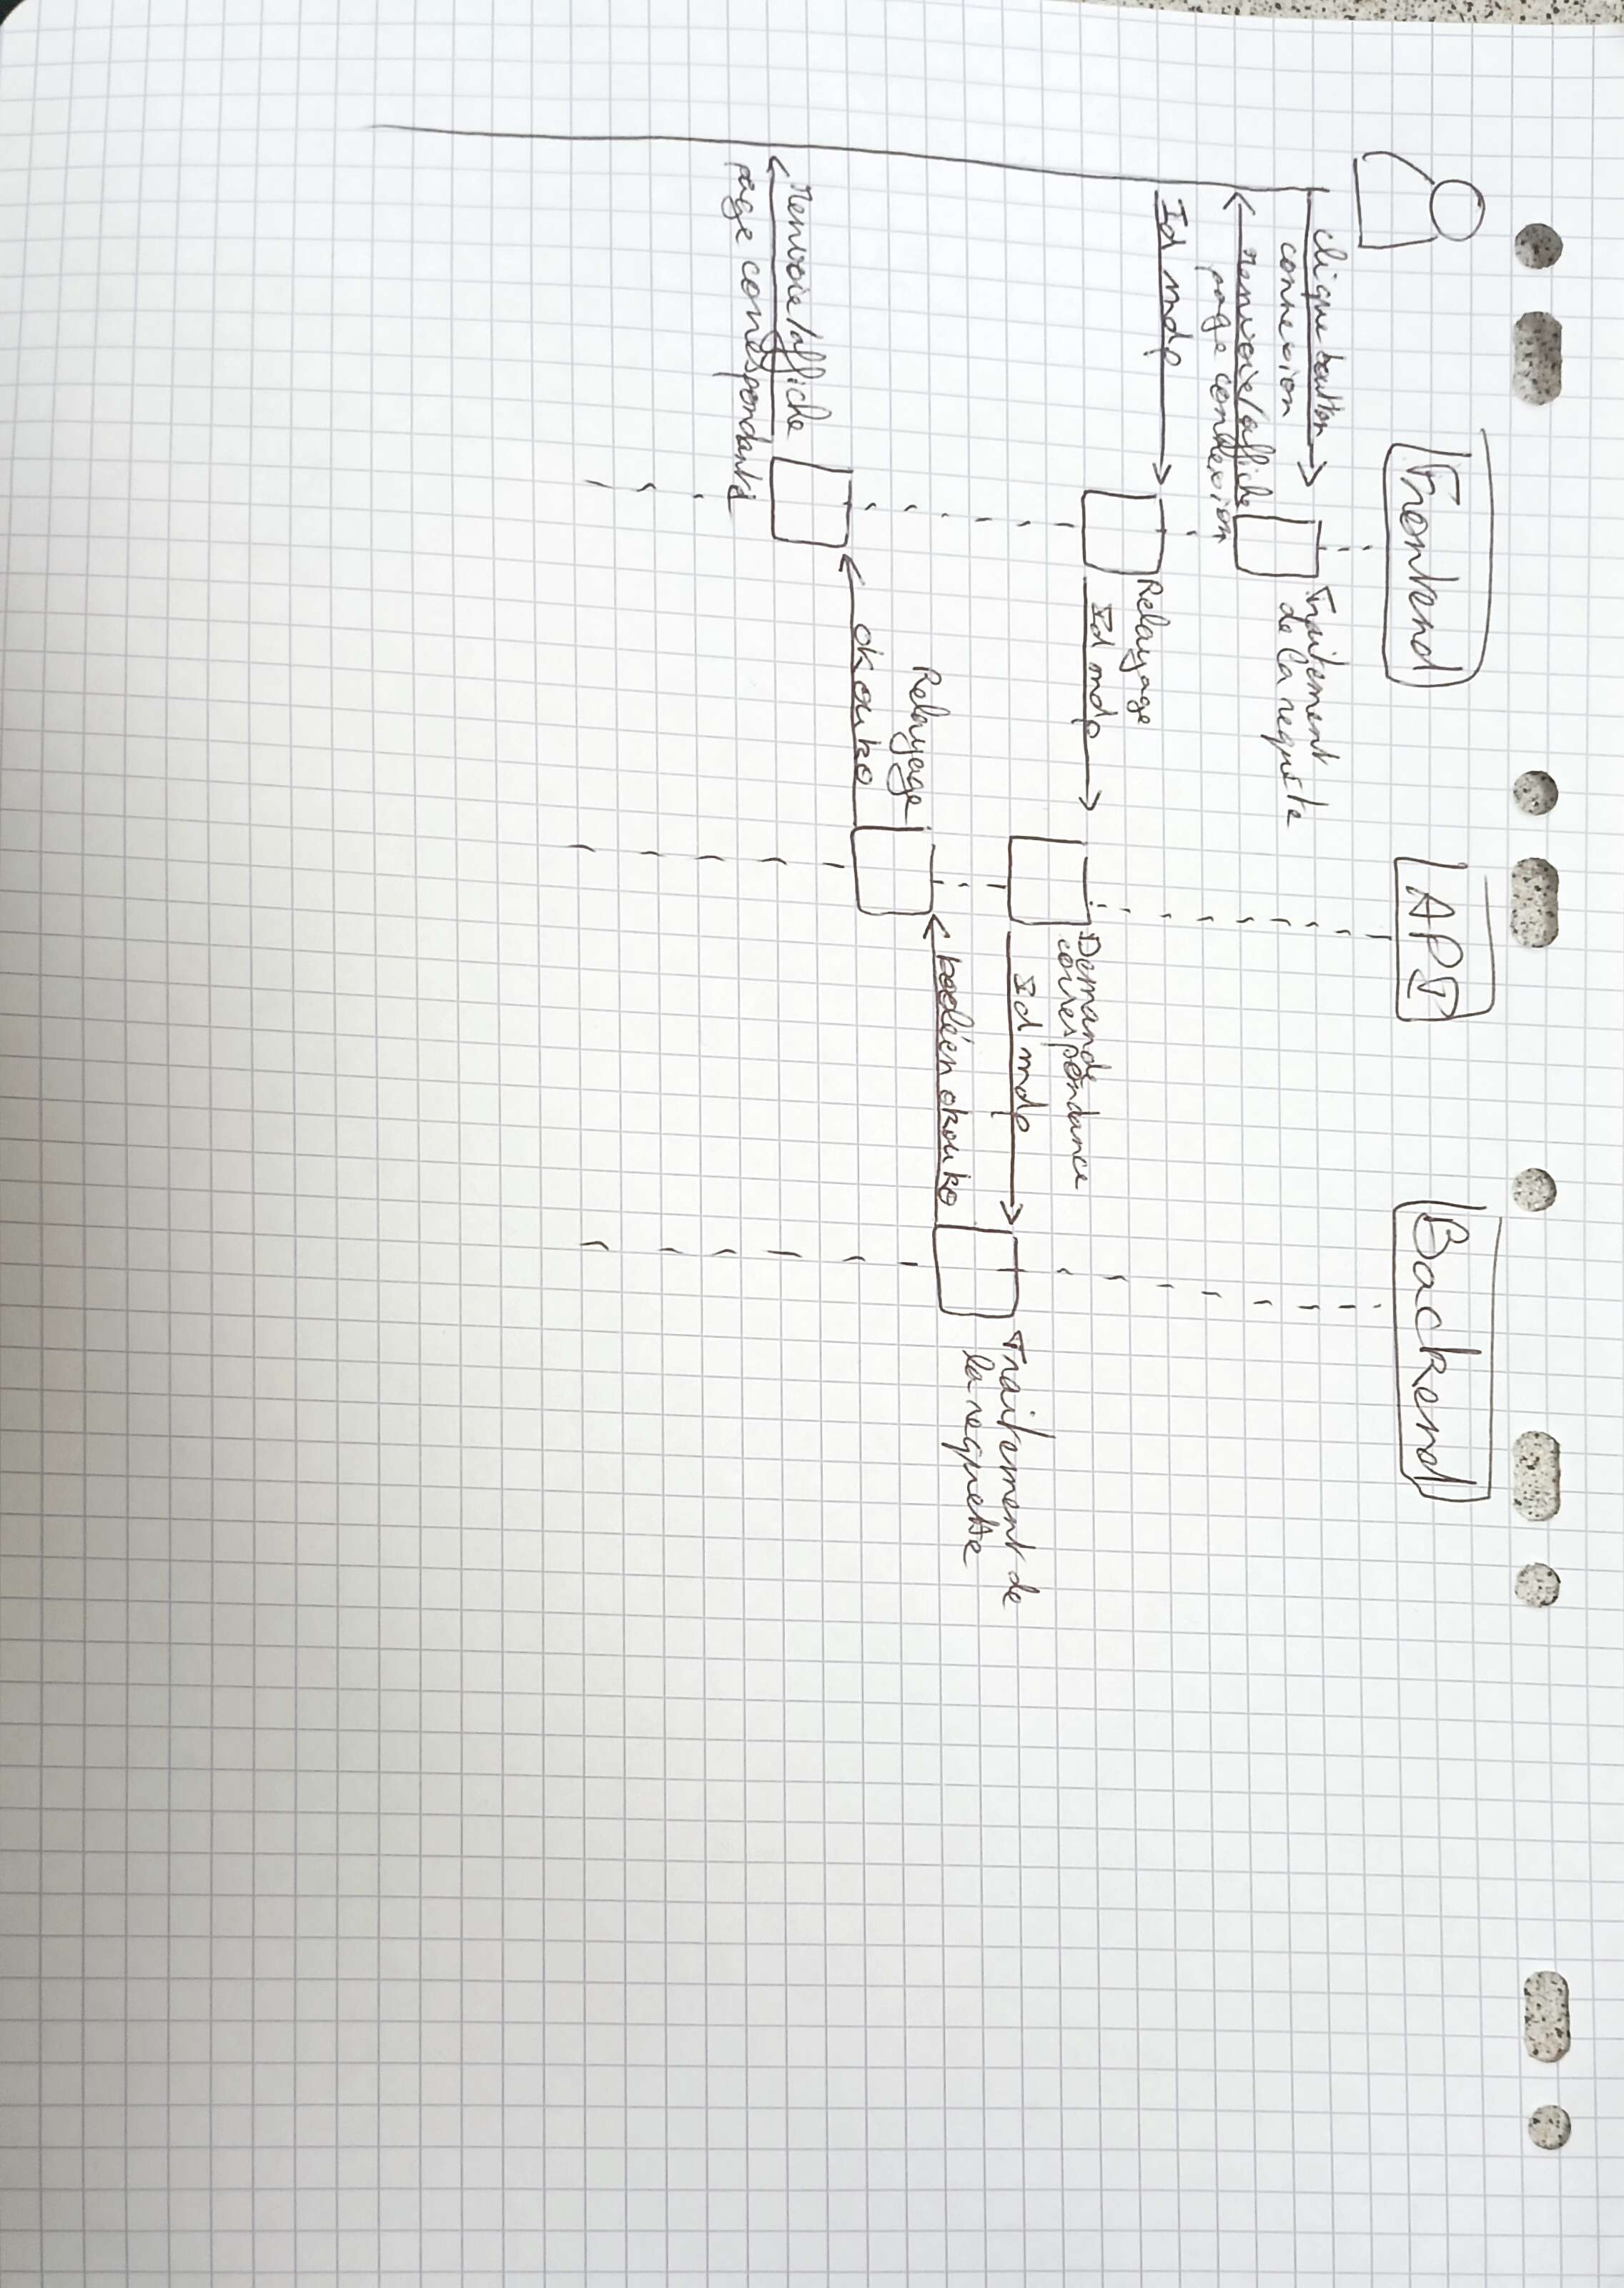 Frontend
API
Backend
clique boutton
connexion
Traitement
de la requête
renvoie/affiche
page connexion
Id mdp
Relayage
Id mdp
Demande
correspondance
Id mdp
Traitement de
la requette
booléen ok ou ko
Relayage
ok ou ko
renvoie/affiche
page correspondante